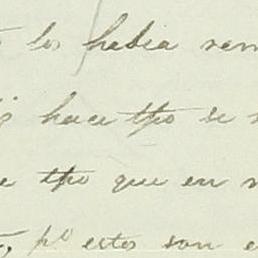 los habia rem
hace tpo se
e tpo que en
, pº estos son e